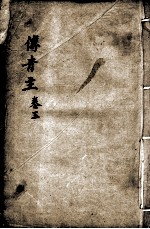 傅青主
卷三